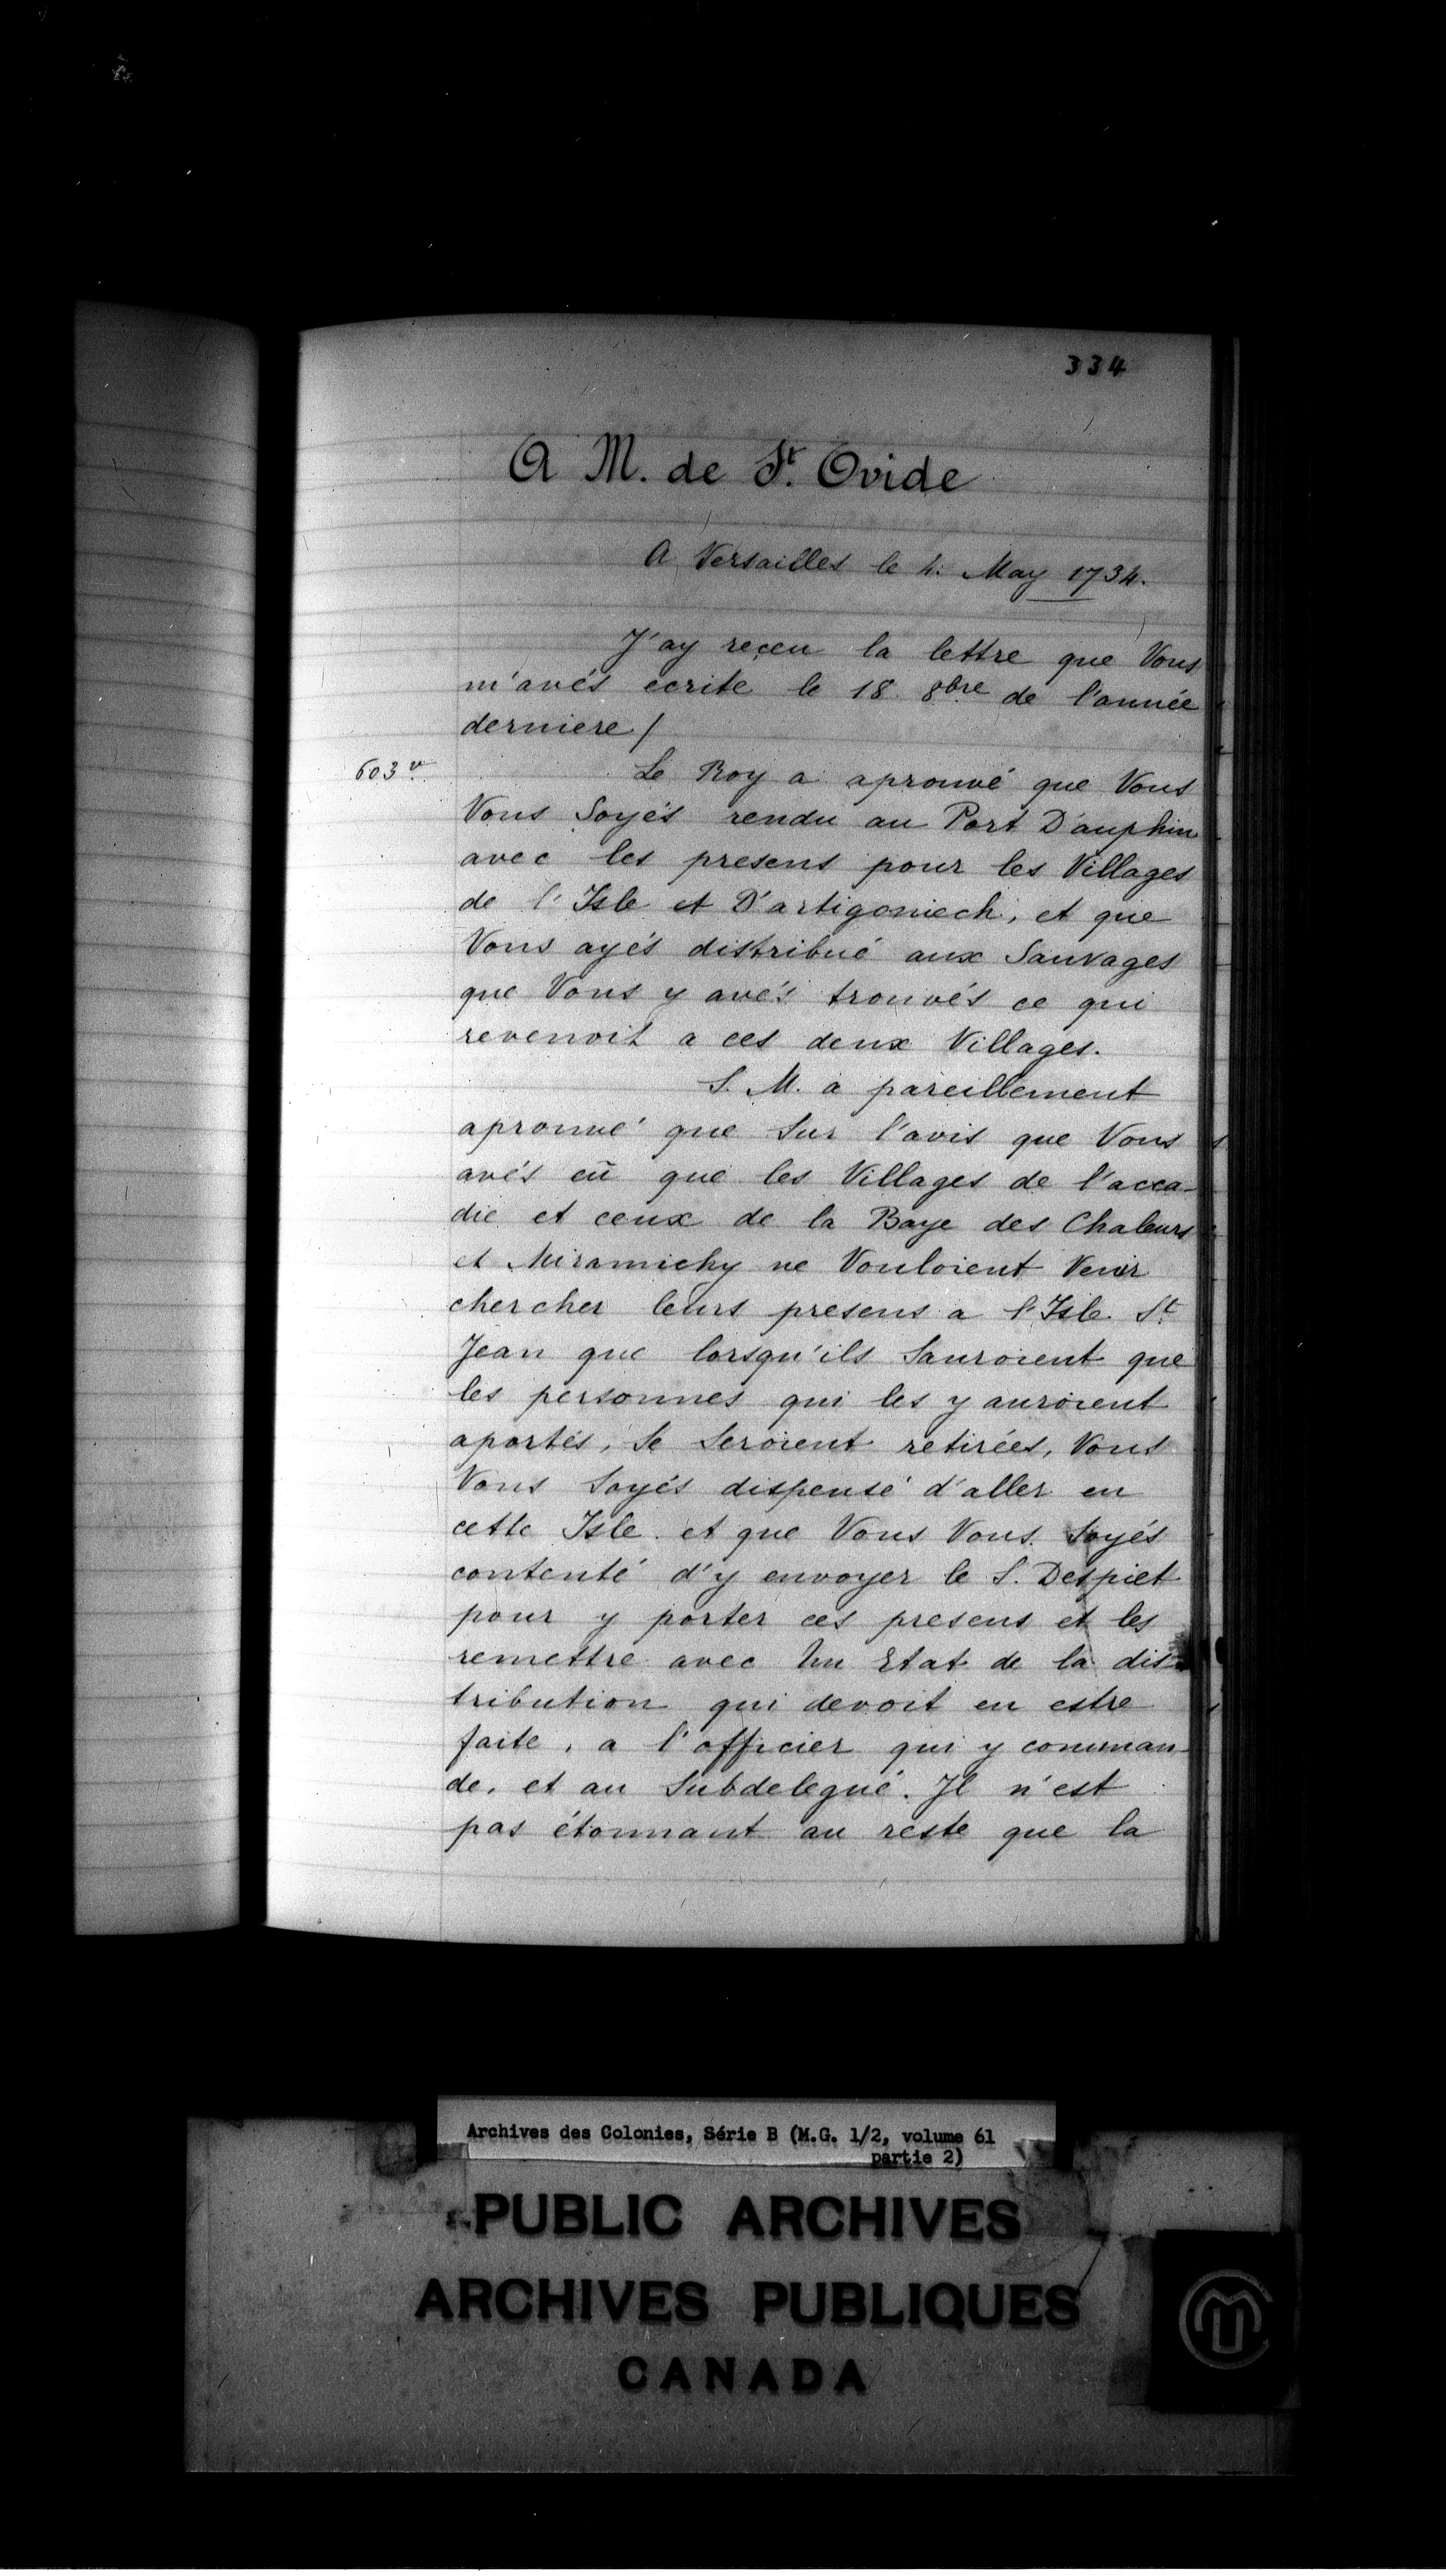 334
A M. de St. Ovide
A Versailles le 4. May 1734.
J'ay reçeu la lettre que Vous
m'avés ecrite le 18 8bre de l'année
derniere /
603 v.
Le Roy a aprouvé que Vous
Vous Soyés rendu au Port Dauphin
avec les presens pour les Villages
de l'Isle et D'artigoniech, et que
Vous ayés distribué aux Sauvages
que Vous y avés trouvés ce qui
revenoit a ces deux Villages.
S. M. a pareillement
aprouvé que Sur l'avis que Vous
avés eü que les Villages de l'acca-
die et ceux de la Baye des Chaleurs
et Miramichy ne Vouloient Venir
chercher leurs presens a l'Isle St.
Jean que lorsqu'ils Sauroient que
les personnes qui les y auroient
aportés, Se Seroient retirées, Vous
Vous Soyés dispensé d'aller en
cette Isle et que Vous Vous Soyés
contenté d'y envoyer le S. Despiet
pour y porter ces presens et les
remettre avec Un Etat de la dis-
tribution qui devoit en estre
faite, a l'officier qui y comman-
de, et au Subdelegué. Il n'est
pas étonnant au reste que la
Archives des Colonies, Série B (M.G. 1/2, volume 61
partie 2)
PUBLIC ARCHIVES
ARCHIVES PUBLIQUES
CANADA